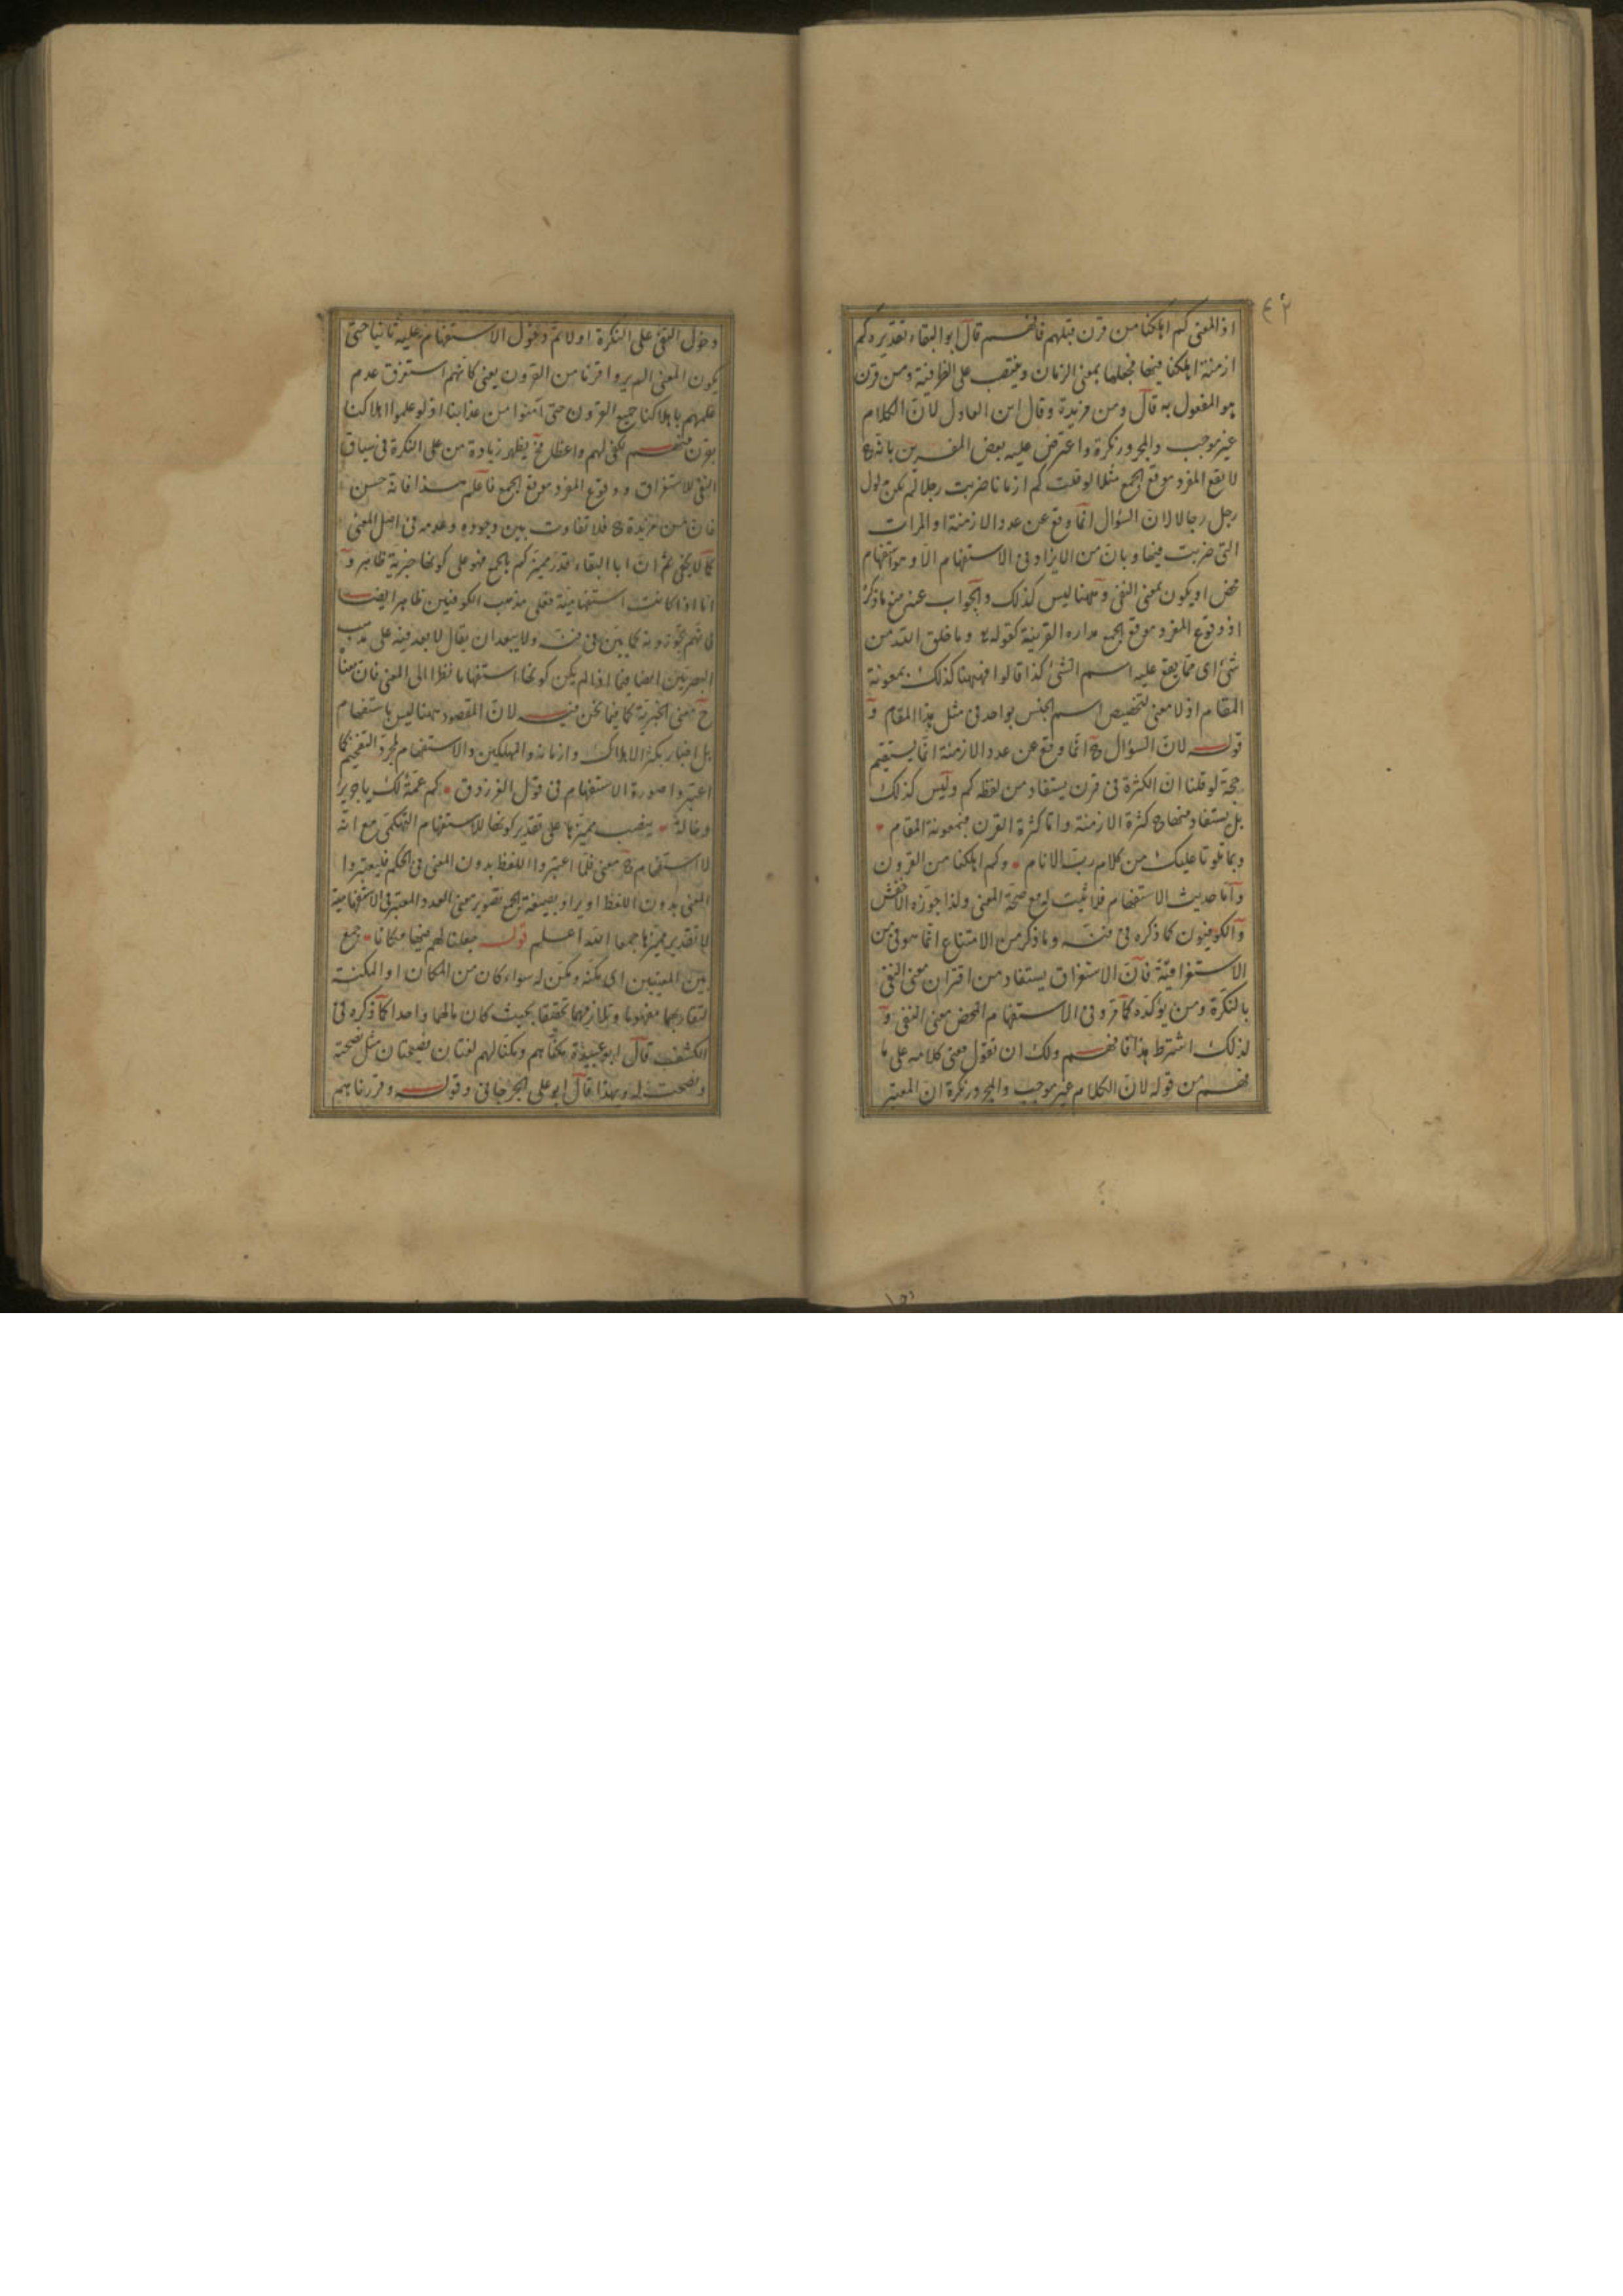 ٤٢
اذ المعنى كم اهلكنا من قرن قبلهم فافهم قال ابو البقاء تقديره كم
ازمنة اهلكنا فيها فجعلها بمعنى الزمان وينتصب على الظرفية ومن قرن
هو المفعول به قال ومن مزيدة وقال ابن العادل لان الكلام
غير موجب والمجرور نكرة واعترض عليه بعض المفسرين بانه ح
لا يقع المفرد موقع الجمع مثلا لو قلت كم ازمانا ضربت رجلا لم يكن مدلول
رجل رجالا لان السؤال انما وقع عن عدد الازمنة او المرات
التى ضربت فيها وبان من لا يزاد فى الاستفهام الا وهو استفهام
محض او يكون بمعنى النفى وههنا ليس كذلك والجواب عنه منع ما ذكره
اذ وقوع المفرد موقع الجمع مداره القرينة كقوله تع وما خلق الله من
شئ اى مما يقع عليه اسم الشئ كذا قالوا فههنا كذلك بمعونة
المقام اذ لا معنى لتخصيص اسم الجنس بواحد فى مثل هذا المقام و
قوله لان السؤال ح انما وقع عن عدد الازمنة انما يستقيم
حجة لو قلنا ان الكثرة فى قرن يستفاد من لفظه كم وليس كذلك
بل يستفاد منها ح كثرة الازمنة واما كثرة القرن فبمعونة المقام
وبما تلونا عليك من كلام رب الانام وكم اهلكنا من القرون
واما حديث الاستفهام فلا يثبت له مع صحة المعنى ولذا جوزه الاخفش
والكوفيون كما ذكره فى فنه وما ذكر من الامتناع انما هو فى من
الاستغراقية فان الاستغراق يستفاد من اقتران معنى النفى
بالنكرة ومن يؤكده كما قر وفى الاستفهام المحض معنى النفى و
لذلك اشترط هذا فافهم ولك ان تقول معنى كلامه على ما
فهم من قوله لان الكلام غير موجب والمجرور نكرة ان المعتبر
دخول النفى على النكرة اولا ثم دخول الاستفهام عليه ثانيا حتى
يكون المعنى الم يروا قرنا من القرون يعنى كانهم استغرق عدم
علمهم باهلاكنا جميع القرون حتى آمنوا من عذابنا اذ لو علموا اهلاكنا
بقرن منهم لكفى لهم واعظا فح يظهر زيادة من على النكرة فى سياق
النفى للاستغراق ووقوع المفرد موقع الجمع فاعلم هذا فانه حسن
فان من مزيدة ح فلا تفاوت بين وجوده وعدمه فى اصل المعنى
كما لا يخفى ثم ان ابا البقاء قدر مميز كم بالجمع فهو على كونها خبرية ظاهر و
اما اذا كانت استفهامية فعلى مذهب الكوفيين ظاهر ايضا
لانهم يجوزونه كما بين فى فنه ولا يبعد ان يقال لا بعد فيه على مذهب
البصريين ايضا فيما اذا لم يكن كونها استفهاما نظرا الى المعنى فان معناه
ح معنى الخبرية كما فيما نحن فيه لان المقصود ههنا ليس باستفهام
بل اخبار بكثرة الاهلاك وازمانه والمهلكين والاستفهام لمجرد التفخيم كما
اعتبروا صورة الاستفهام فى قول الفرزدق كم عمة لك يا جرير
وخالة بنصب مميزها على تقدير كونها للاستفهام التهكمى مع انه
لا استفهام ح معنى فلما اعتبروا اللفظ بدون المعنى فى الحكم فليعتبروا
المعنى بدون اللفظ او يراد بصيغة الجمع تصوير معنى العدد المعتبر فى الاستفهامية
لا تقدير مميزها جمعا الله اعلم قوله جعلنا لهم فيها مكانا جمع
بين المعنيين اى مكنه ومكن له سواء كان من المكان او المكنة
لتقاربهما مفهوما وتلازمهما تحققا بحيث كان مالهما واحدا كما ذكره فى
الكشف قال ابو عبيدة مكناهم ومكنا لهم لغتان فصيحتان مثل نصحته
ونصحت له وبهذا قال ابو على الجرجانى وقوله وقررناهم